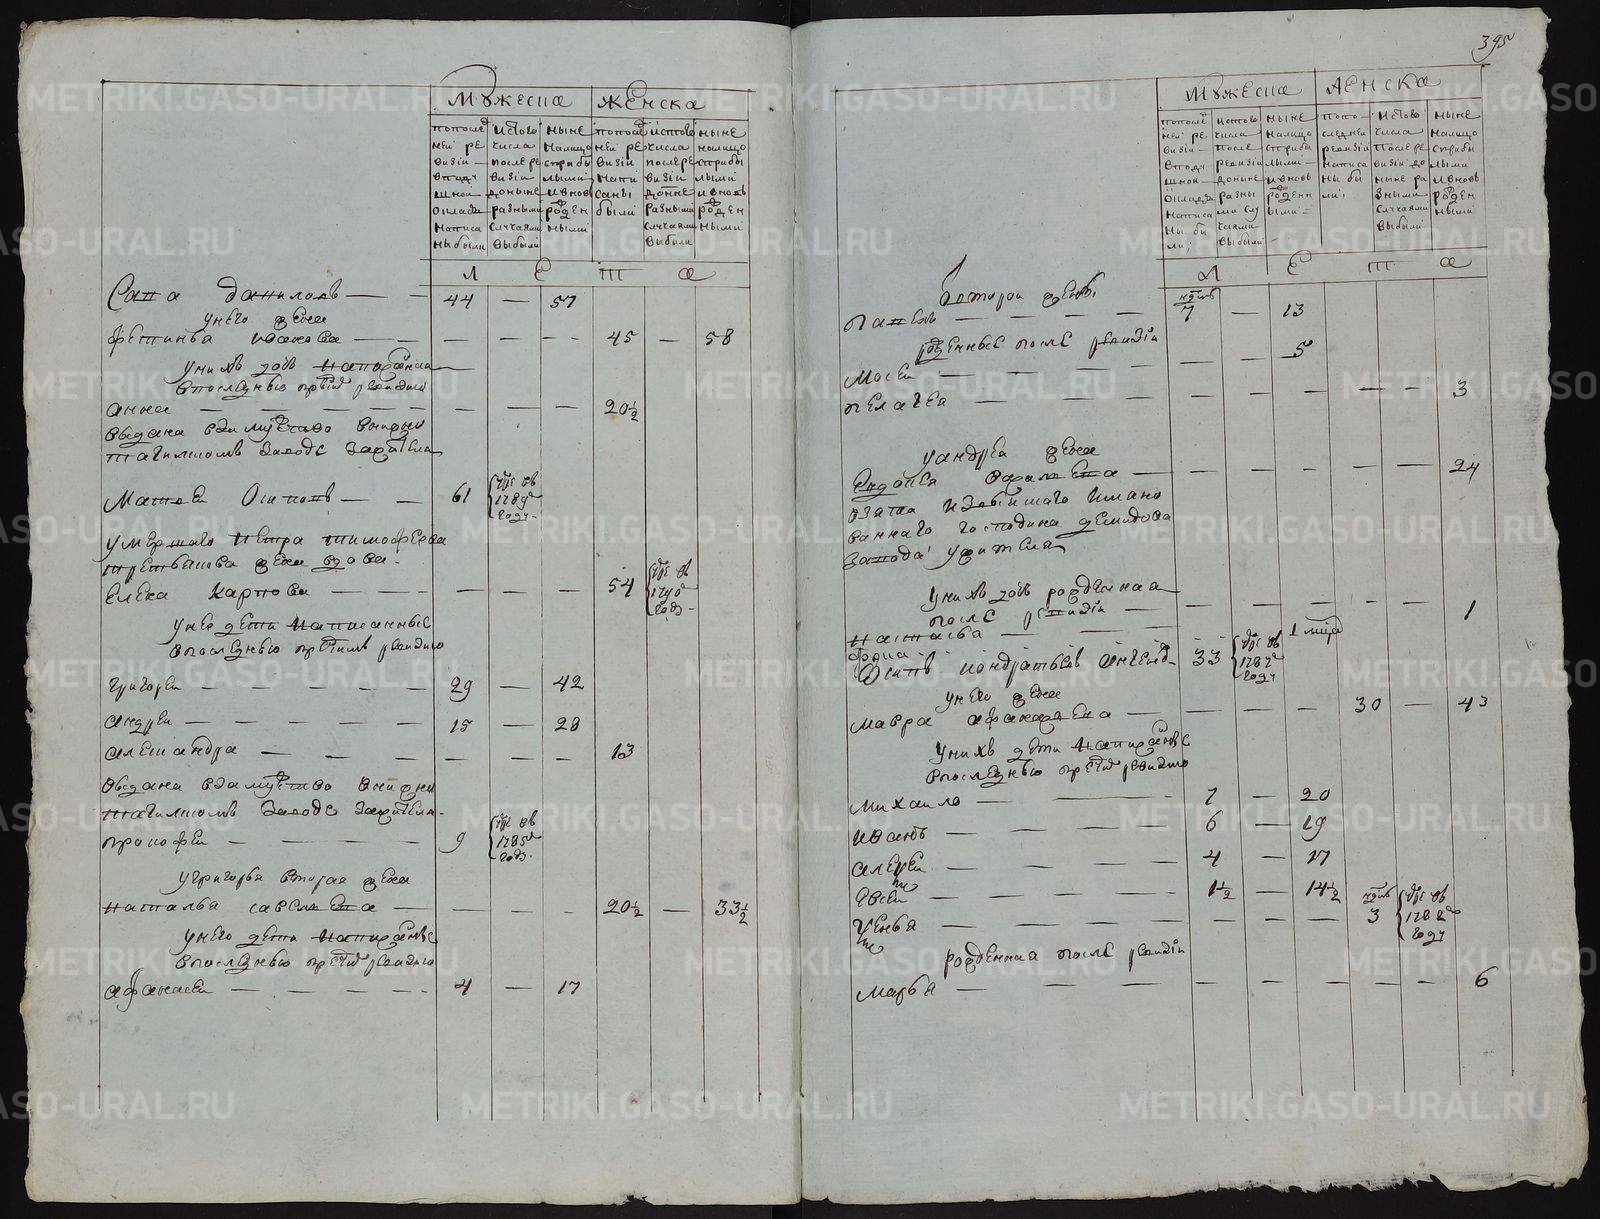 395
Мужеска Женска
По последней ревизии в подушной оклад написаны были
Ис того числа после ревизии до ныне разными случаями выбыли
Ныне на лицо с прибылыми и вновь рожденными
По последней ревизии написаны были
Ис того числа после ревизии до ныне разными случаями выбыли
Ныне на лицо с прибылыми и вновь рожденными
Л Е Т А
Сава Данилов — — 44 — 57
У него жена
Фетинья Иванова — — — — — 45 — 58
У них дочь написанная
в последнюю пред сим ревизию
Анна — — — — — — — 20½
Выдана в замужство в Нижно
тагилском заводе за жителя
Матвей Осипов — — 61 умре в 1789м году
Умершаго Петра Тимофеева
жена вдова
Елена Карпова — — — — — — 54 умре в 1790м годе
У нее дети написанные
в последнюю пред сим ревизию
Григорей — — — — — 29 — 42
Андрей — — — — — 15 — 28
Александра — — — — — — 13
Выдана в замужство в Нижно
тагилском заводе за жителя
Прокофей — — — — 9 умре в 1785м годе
У Григорья вторая жена
Наталья Савельева — — — — — 20½ — 33½
У него дети написанные
в последнюю пред сим ревизию
Афанасей — — — — — 4 — 17
Мужеска Женска
По последней ревизии в подушной оклад написаны были
Ис того числа после ревизии до ныне разными случаями выбыли
Ныне на лицо с прибылыми и вновь рожденными
По последней ревизии написаны были
Ис того числа после ревизии до ныне разными случаями выбыли
Ныне на лицо с прибылыми и вновь рожденными
Л Е Т А
Павел — — — — 7 — 13
Рожденные после ревизии
Мосей — — — — — — 5
Пелагея — — — — — — — — 3
У Андрея жена
Евдокея Вафилеева — — — — — — 24
взята из бывшаго Имано
ваннаго господина Демидова
завода у жителя
У них дочь рожденная
после ревизии — — — — — 1
Настасья
Осип Кондратьев 33 умре в 1787м году
У него жена
Мавра Афанасьева — — — — — 30 — 43
У них дети написанные
в последнюю пред сим ревизию
Михайло — — 7 — 20
Иван — — — 6 — 19
Алексей — — — 4 — 17
Евсей — — — 1½ — 14½
— — — — — — 3 умре в 1788м году
Рожденная после ревизии
Марья — — — — — — — — 6
METRIKI.GASO-URAL.RU